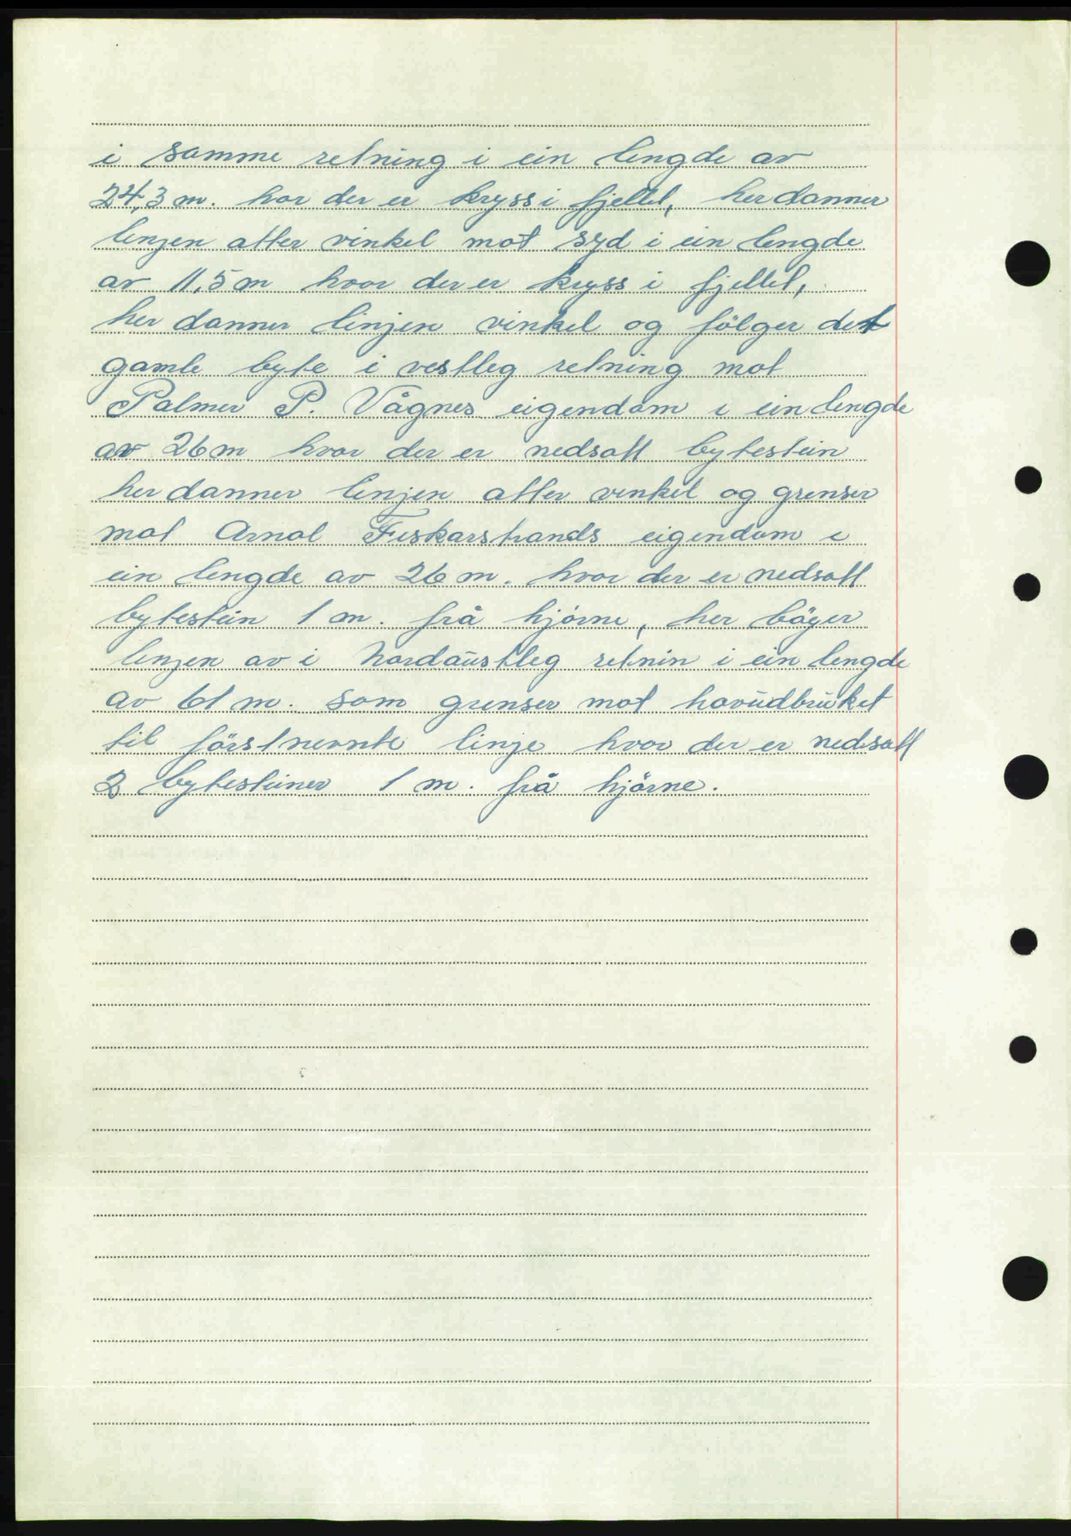 i samme retning i ein lengde av
24,3 m. hvor der er kryss i fjellet, her danner
linjen atter vinkel mot syd i ein lengde
av 11,5 m hvor der er kryss i fjellet,
her danner linjen vinkel og følger det
gamle byte i vestleg retning mot
Palmer P. Vågnes eigendom i ein lengde
av 26 m hvor der er nedsatt bytestein
her danner linjen atter vinkel og grenser
mot Arnol Fiskarstrands eigendom i
ein lengde av 26 m. hvor der er nedsatt
bytestein 1 m. frå hjørne, her bøyer
linjen av i nordaustleg retnin i ein lengde
av 61 m. som grenser mot hovudbruket
til førstnevnte linje hvor der er nedsatt
2 bytesteiner 1 m. frå hjørne.